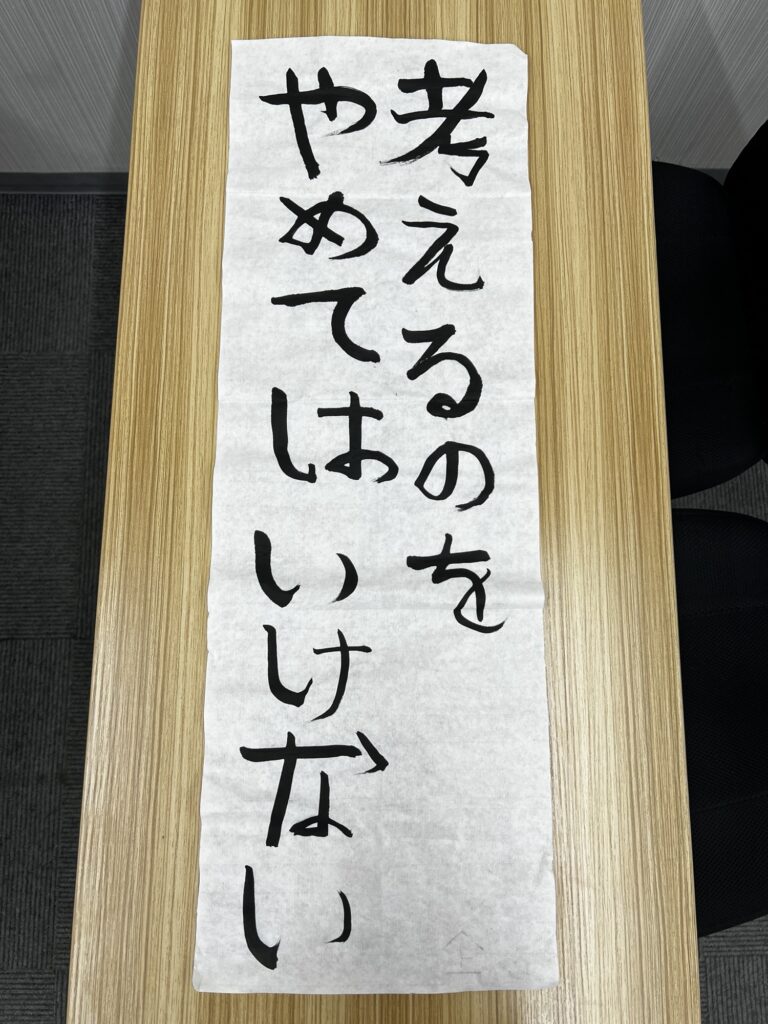 考えるのを
やめてはいけない